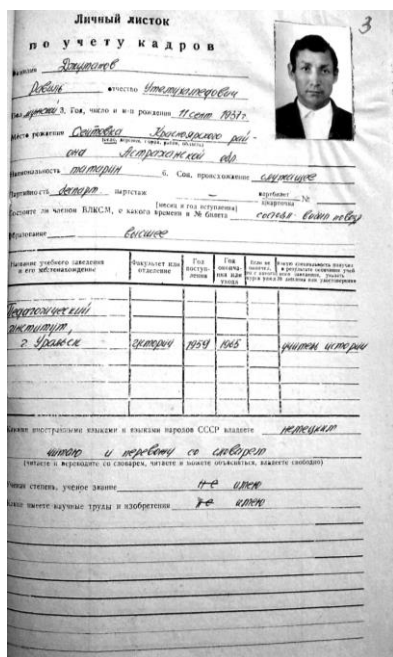 3
Личный листок
по учету кадров
Фамилия Джуматов
Равиль отчество Утемухамедович
Пол мужской 3. Год, число и м-ц рождения 11 сент 1937г.
Место рождения Сеитовка Красноярского рай-
она Астраханской обл.
Национальность татарин 6. Соц. происхождение служащее
Партийность беспарт. партстаж — партбилет карточка №
Состоите ли членом ВЛКСМ, с какого времени и № билета состоял - выбыл по возр
(месяц и год вступления)
Образование высшее
Название учебного заведения и его местонахождение
Факультет или отделение
Год поступления
Год окончания или ухода
Педагогический
институт,
г. Уральск истории 1959 1965 учитель истории
Какими иностранными языками и языками народов СССР владеете немецким
читаю и перевожу со словарем
(читаете и переводите со словарем, читаете и можете объясняться, владеете свободно)
Ученая степень, ученое звание не имею
Какие имеете научные труды и изобретения не имею